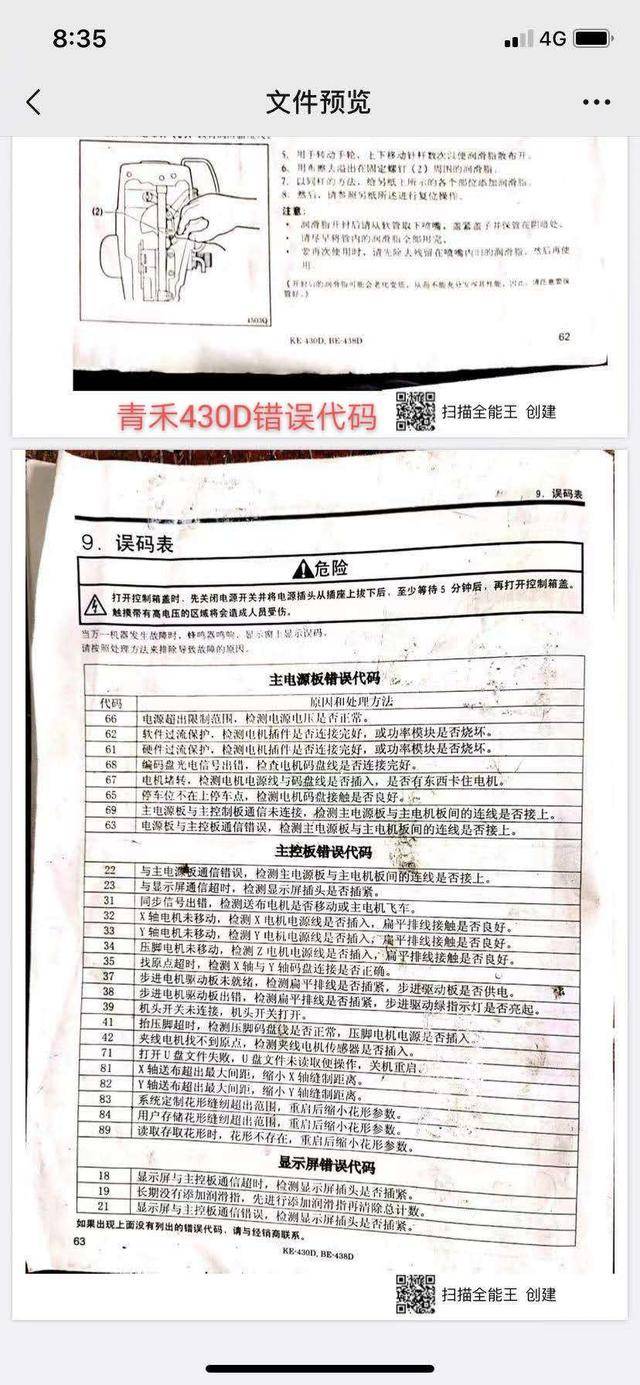 8:35
4G
文件预览
5. 用手转动手轮，上下移动针杆数次以便润滑脂散布开。
6. 用布擦去溢出在固定螺钉（2）周围的润滑脂。
7. 以同样的方法，给另纸上所示的各个部位添加润滑脂。
8. 然后，请参照另纸所述进行复位操作。
(2)
注意：
• 润滑脂开封后请从软管取下喷嘴，盖紧盖子并保管在阴暗处。
• 请尽早将管内的润滑脂全部用完。
• 要再次使用时，请先除去残留在喷嘴内旧的润滑脂，然后再使
用
（开封后的润滑脂可能会老化变质，从而不能充分发挥其性能，因此，请注意要保
管好。）
4503Q
KE-430D, BE-438D
62
青禾430D错误代码
扫描全能王 创建
9. 误码表
9. 误码表
危险
打开控制箱盖时，先关闭电源开关并将电源插头从插座上拔下后，至少等待5 分钟后，再打开控制箱盖。
触摸带有高电压的区域将会造成人员受伤。
当万一机器发生故障时，蜂鸣器鸣响，显示窗上显示误码。
请按照处理方法来排除导致故障的原因。
主电源板错误代码
代码 原因和处理方法
66 电源超出限制范围，检测电源电压是否正常。
62 软件过流保护，检测电机插件是否连接完好，或功率模块是否烧坏。
61 硬件过流保护，检测电机插件是否连接完好，或功率模块是否烧坏。
68 编码盘光电信号出错，检查电机码盘线是否连接完好。
67 电机堵转，检测电机电源线与码盘线是否插入，是否有东西卡住电机。
65 停车位不在上停车点，检测电机码盘接触是否良好。
69 主电源板与主控制板通信未连接，检测主电源板与主电机板间的连线是否接上。
63 电源板与主控板通信错误，检测主电源板与主电机板间的连线是否接上。
主控板错误代码
22 与主电源板通信错误，检测主电源板与主电机板间的连线是否接上。
23 与显示屏通信超时，检测显示屏插头是否插紧。
31 同步信号出错，检测送布电机是否移动或主电机飞车。
32 X 轴电机未移动，检测 X 电机电源线是否插入，扁平排线接触是否良好。
33 Y 轴电机未移动，检测 Y 电机电源线是否插入，扁平排线接触是否良好。
34 压脚电机未移动，检测 Z 电机电源线是否插入，扁平排线接触是否良好。
35 找原点超时，检测 X 轴与 Y 轴码盘连接是否正确。
37 步进电机驱动板未就绪，检测扁平排线是否插紧，步进驱动板是否供电。
38 步进电机驱动板出错，检测扁平排线是否插紧，步进驱动绿指示灯是否亮起。
39 机头开关未连接，机头开关打开。
41 抬压脚超时，检测压脚码盘线是否正常，压脚电机电源是否插入。
42 夹线电机找不到原点，检测夹线电机传感器是否插入。
71 打开 U 盘文件失败，U 盘文件未读取便操作，关机重启。
81 X 轴送布超出最大间距，缩小 X 轴缝制距离。
82 Y 轴送布超出最大间距，缩小 Y 轴缝制距离。
83 系统定制花形缝纫超出范围，重启后缩小花形参数。
84 用户存储花形缝纫超出范围，重启后缩小花形参数。
89 读取存取花形时，花形不存在，重启后缩小花形参数。
显示屏错误代码
18 显示屏与主控板通信超时，检测显示屏插头是否插紧。
19 长期没有添加润滑指，先进行添加润滑指再清除总计数。
21 显示屏与主控板通信错误，检测显示屏插头是否插紧。
如果出现上面没有列出的错误代码，请与经销商联系。
63
KE-430D, BE-438D
扫描全能王 创建